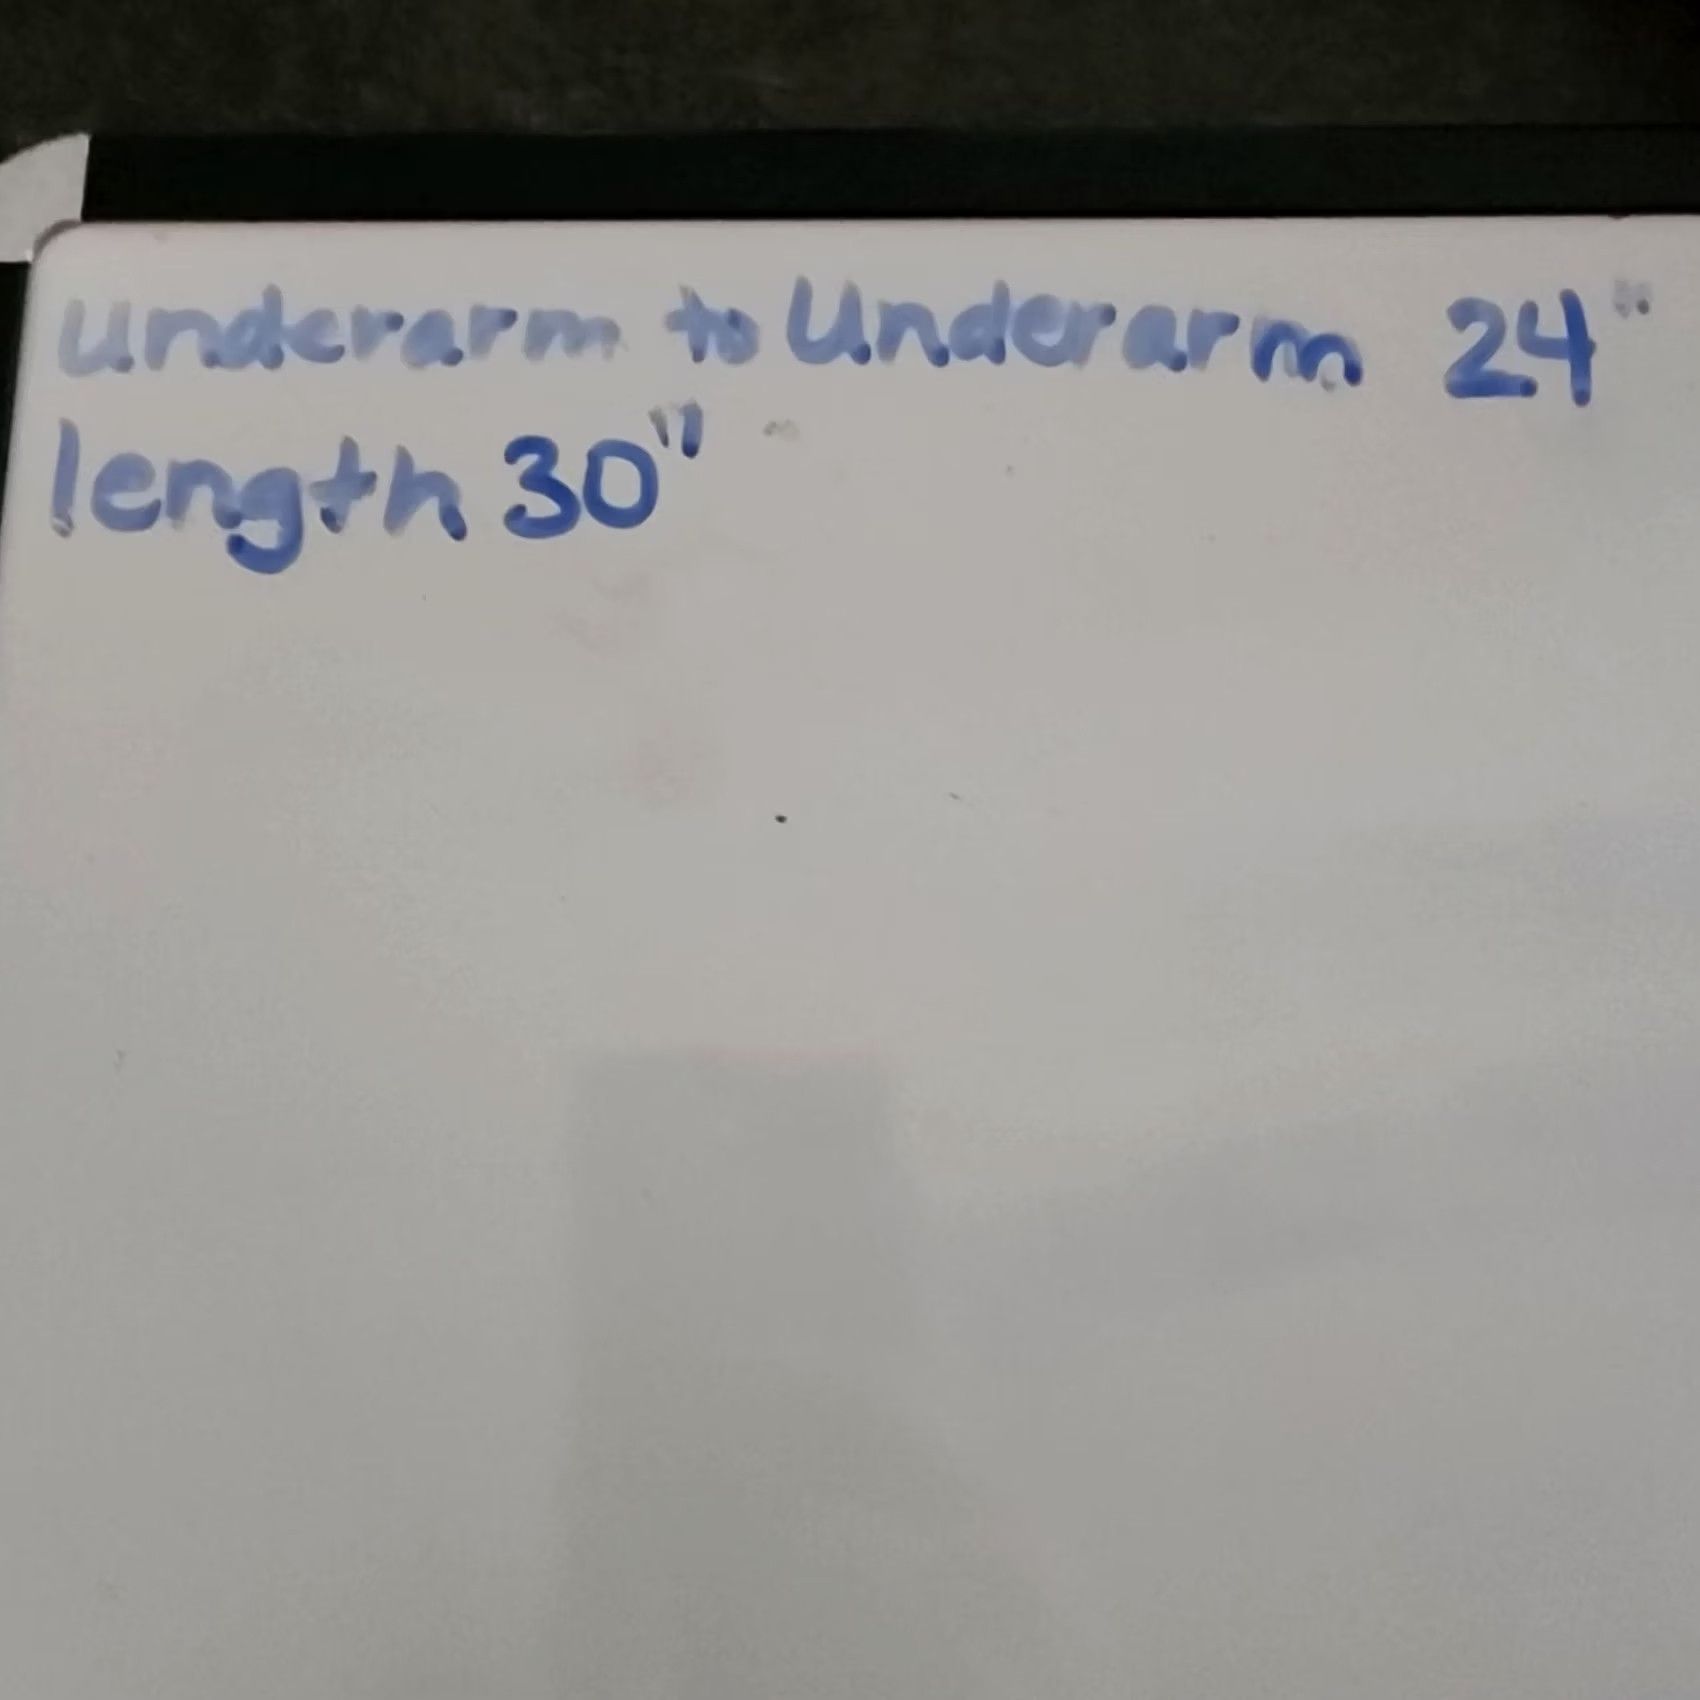 underarm to Underarm 24"
length 30"